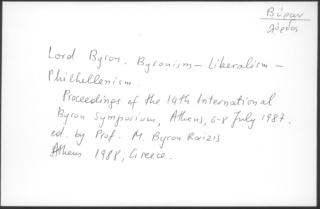 Βύρων
λόρδος
Lord Byron. Byronism – Liberalism –
Philhellenism
Proceedings of the 14th International
Byron Symposium, Athens, 6-8 July 1987.
ed. by Prof. M. Byron Raizis
Athens 1988, Greece.